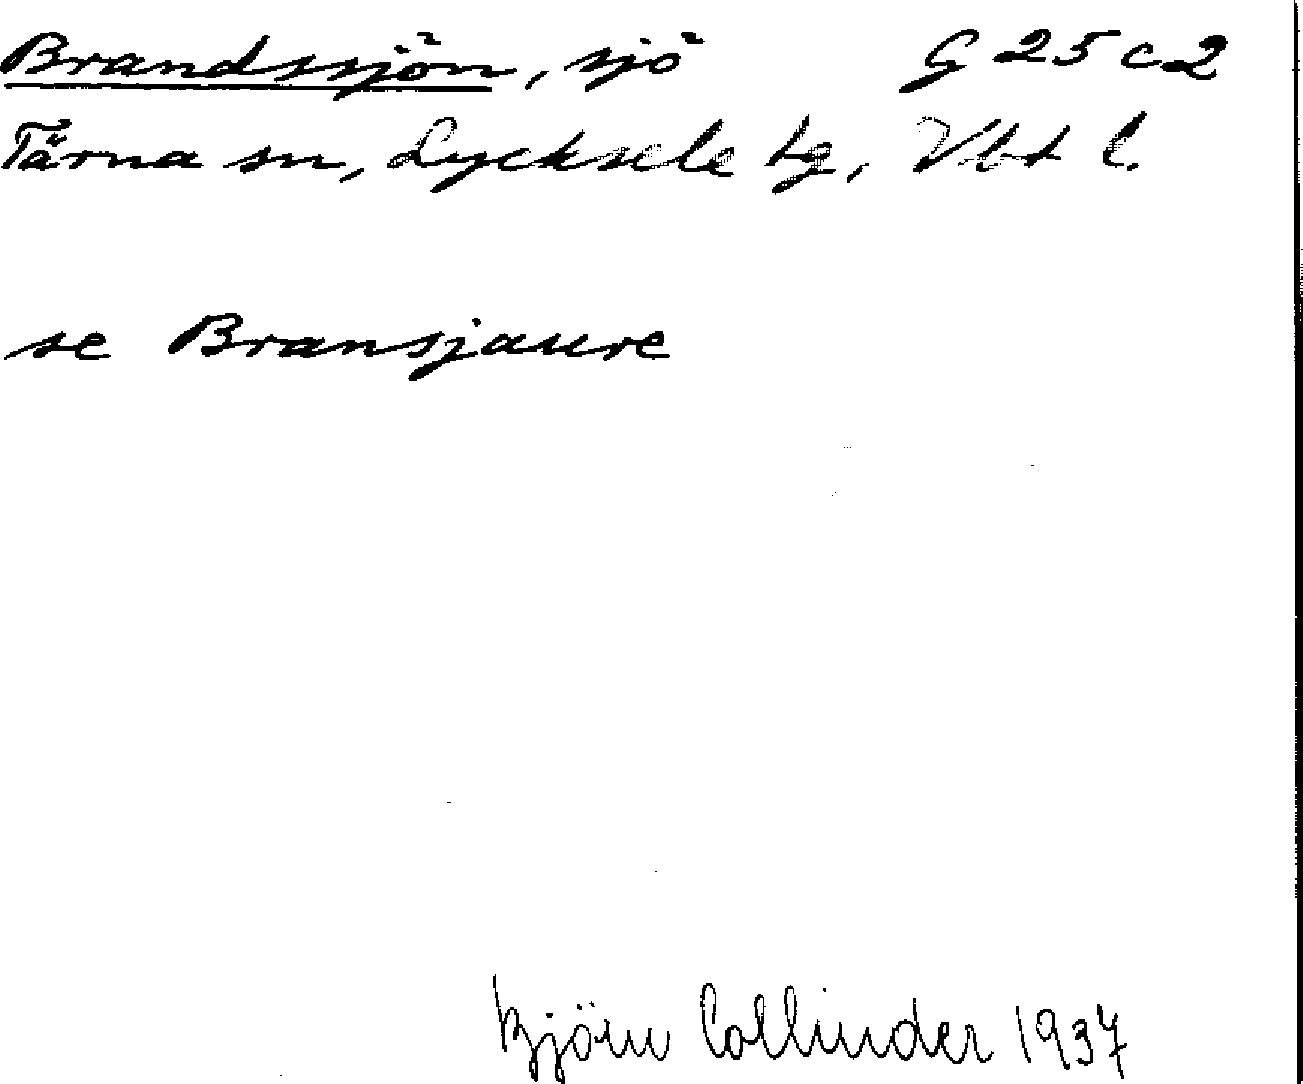 Brandssjön, sjö G 25 c 2
Tärna sn, Lycksele tg, Vbt l.
se Bransjaure
Björn Collinder 1937